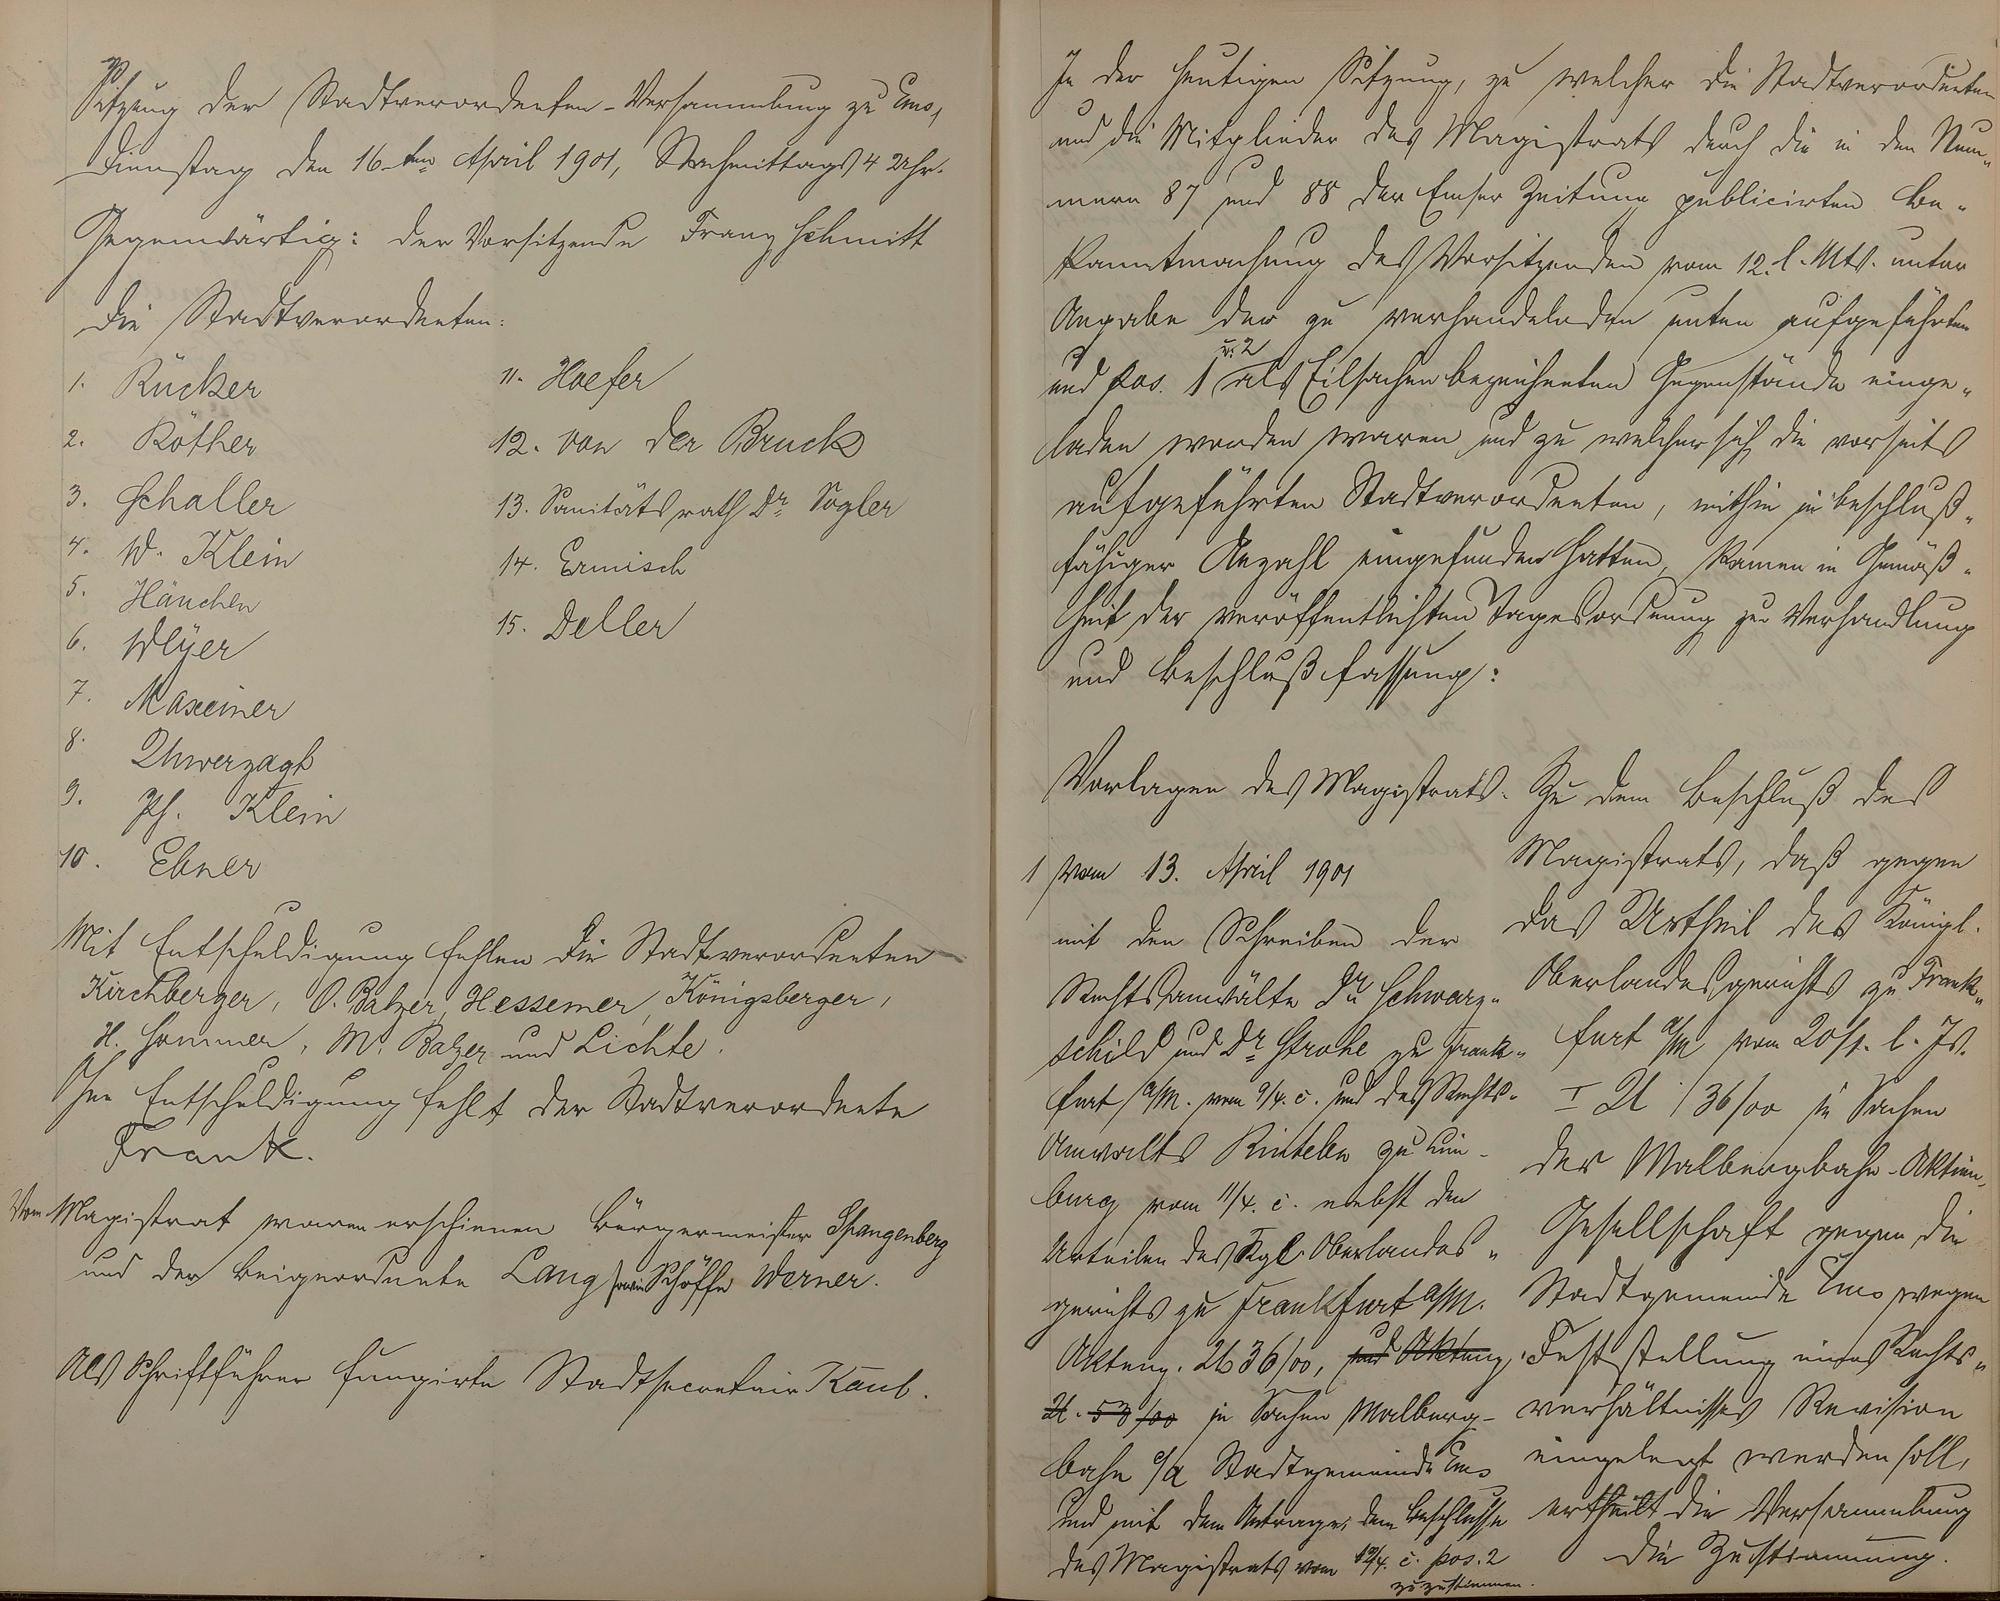 Sitzung der Stadtverordneten-Versammlung zu Ems,
Dienstag den 16ten April 1901, Nachmittags 4 Uhr.
Gegenwärtig: der Vorsitzende Franz Schmitt
die Stadtverordneten:
1. Rücker
2. Röther
3. Schaller
4. W. Klein
5. Hänchen
6. Weyer
7. Maxeiner
8. Unverzagt
9. Ph. Klein
10. Ebner
11. Hoefer
12. von der Bruck
13. Sanitätsrath Dr Vogler
14. Ermisch
15. Deller
Mit Entschuldigung fehlen die Stadtverordneten
Kirchberger, O. Balzer, Hessemer, Königsberger,
H. Sommer, M. Balzer und Lichte.
Ohne Entschuldigung fehlt der Stadtverordnete
Frank.
Vom Magistrat waren erschienen Bürgermeister Spangenberg
und der Beigeordnete Lang sowie Schöffe Werner.
Als Schriftführer fungirte Stadtsecretair Kaul.
In der heutigen Sitzung, zu welcher die Stadtverordneten
und die Mitglieder des Magistrats durch die in den Num-
mern 87 und 88 der Emser Zeitung publicirten Be-
kanntmachung des Vorsitzenden vom 12. l. Mts. unter
Angabe der zu verhandelnden unten aufgeführten
und pos. 1 u. 2 als Eilsachen bezeichneten Gegenstände einge-
laden worden waren und zu welcher sich die vorseits
aufgeführten Stadtverordneten, mithin in beschluß-
fähiger Anzahl eingefunden hatten, kamen in Gemäß-
heit der veröffentlichten Tagesordnung zur Verhandlung
und Beschlußfassung:
Vorlagen des Magistrats.
1 vom 13. April 1901
mit den Schreiben der
Rechtsanwälte Dr Schwarz-
schild und Dr Strohe zu Frank-
furt a/M. vom 9/4. c. und des Rechts-
Anwalts Rintelen zu Lim-
burg vom 11/4. c. nebst den
Urteilen des Kgl. Oberlandes-
gerichts zu Frankfurt a/M.
Aktenz. U 36/00, und Aktenz.
U. 53/00 in Sachen Malberg-
bahn c/a Stadtgemeinde Ems
und mit dem Antrage, dem Beschlusse
des Magistrats vom 12/4. c. pos. 2
zuzustimmen.
Zu dem Beschluß des
Magistrats, daß gegen
das Urtheil des Königl.
Oberlandesgerichts zu Frank-
furt a/M vom 20/. l. Js.
I U 136/00 in Sachen
der Malbergbahn-Aktien-
Gesellschaft gegen die
Stadtgemeinde Ems wegen
Feststellung eines Rechts-
verhältnisses Revision
eingelegt werden soll,
ertheilt die Versammlung
die Zustimmung.